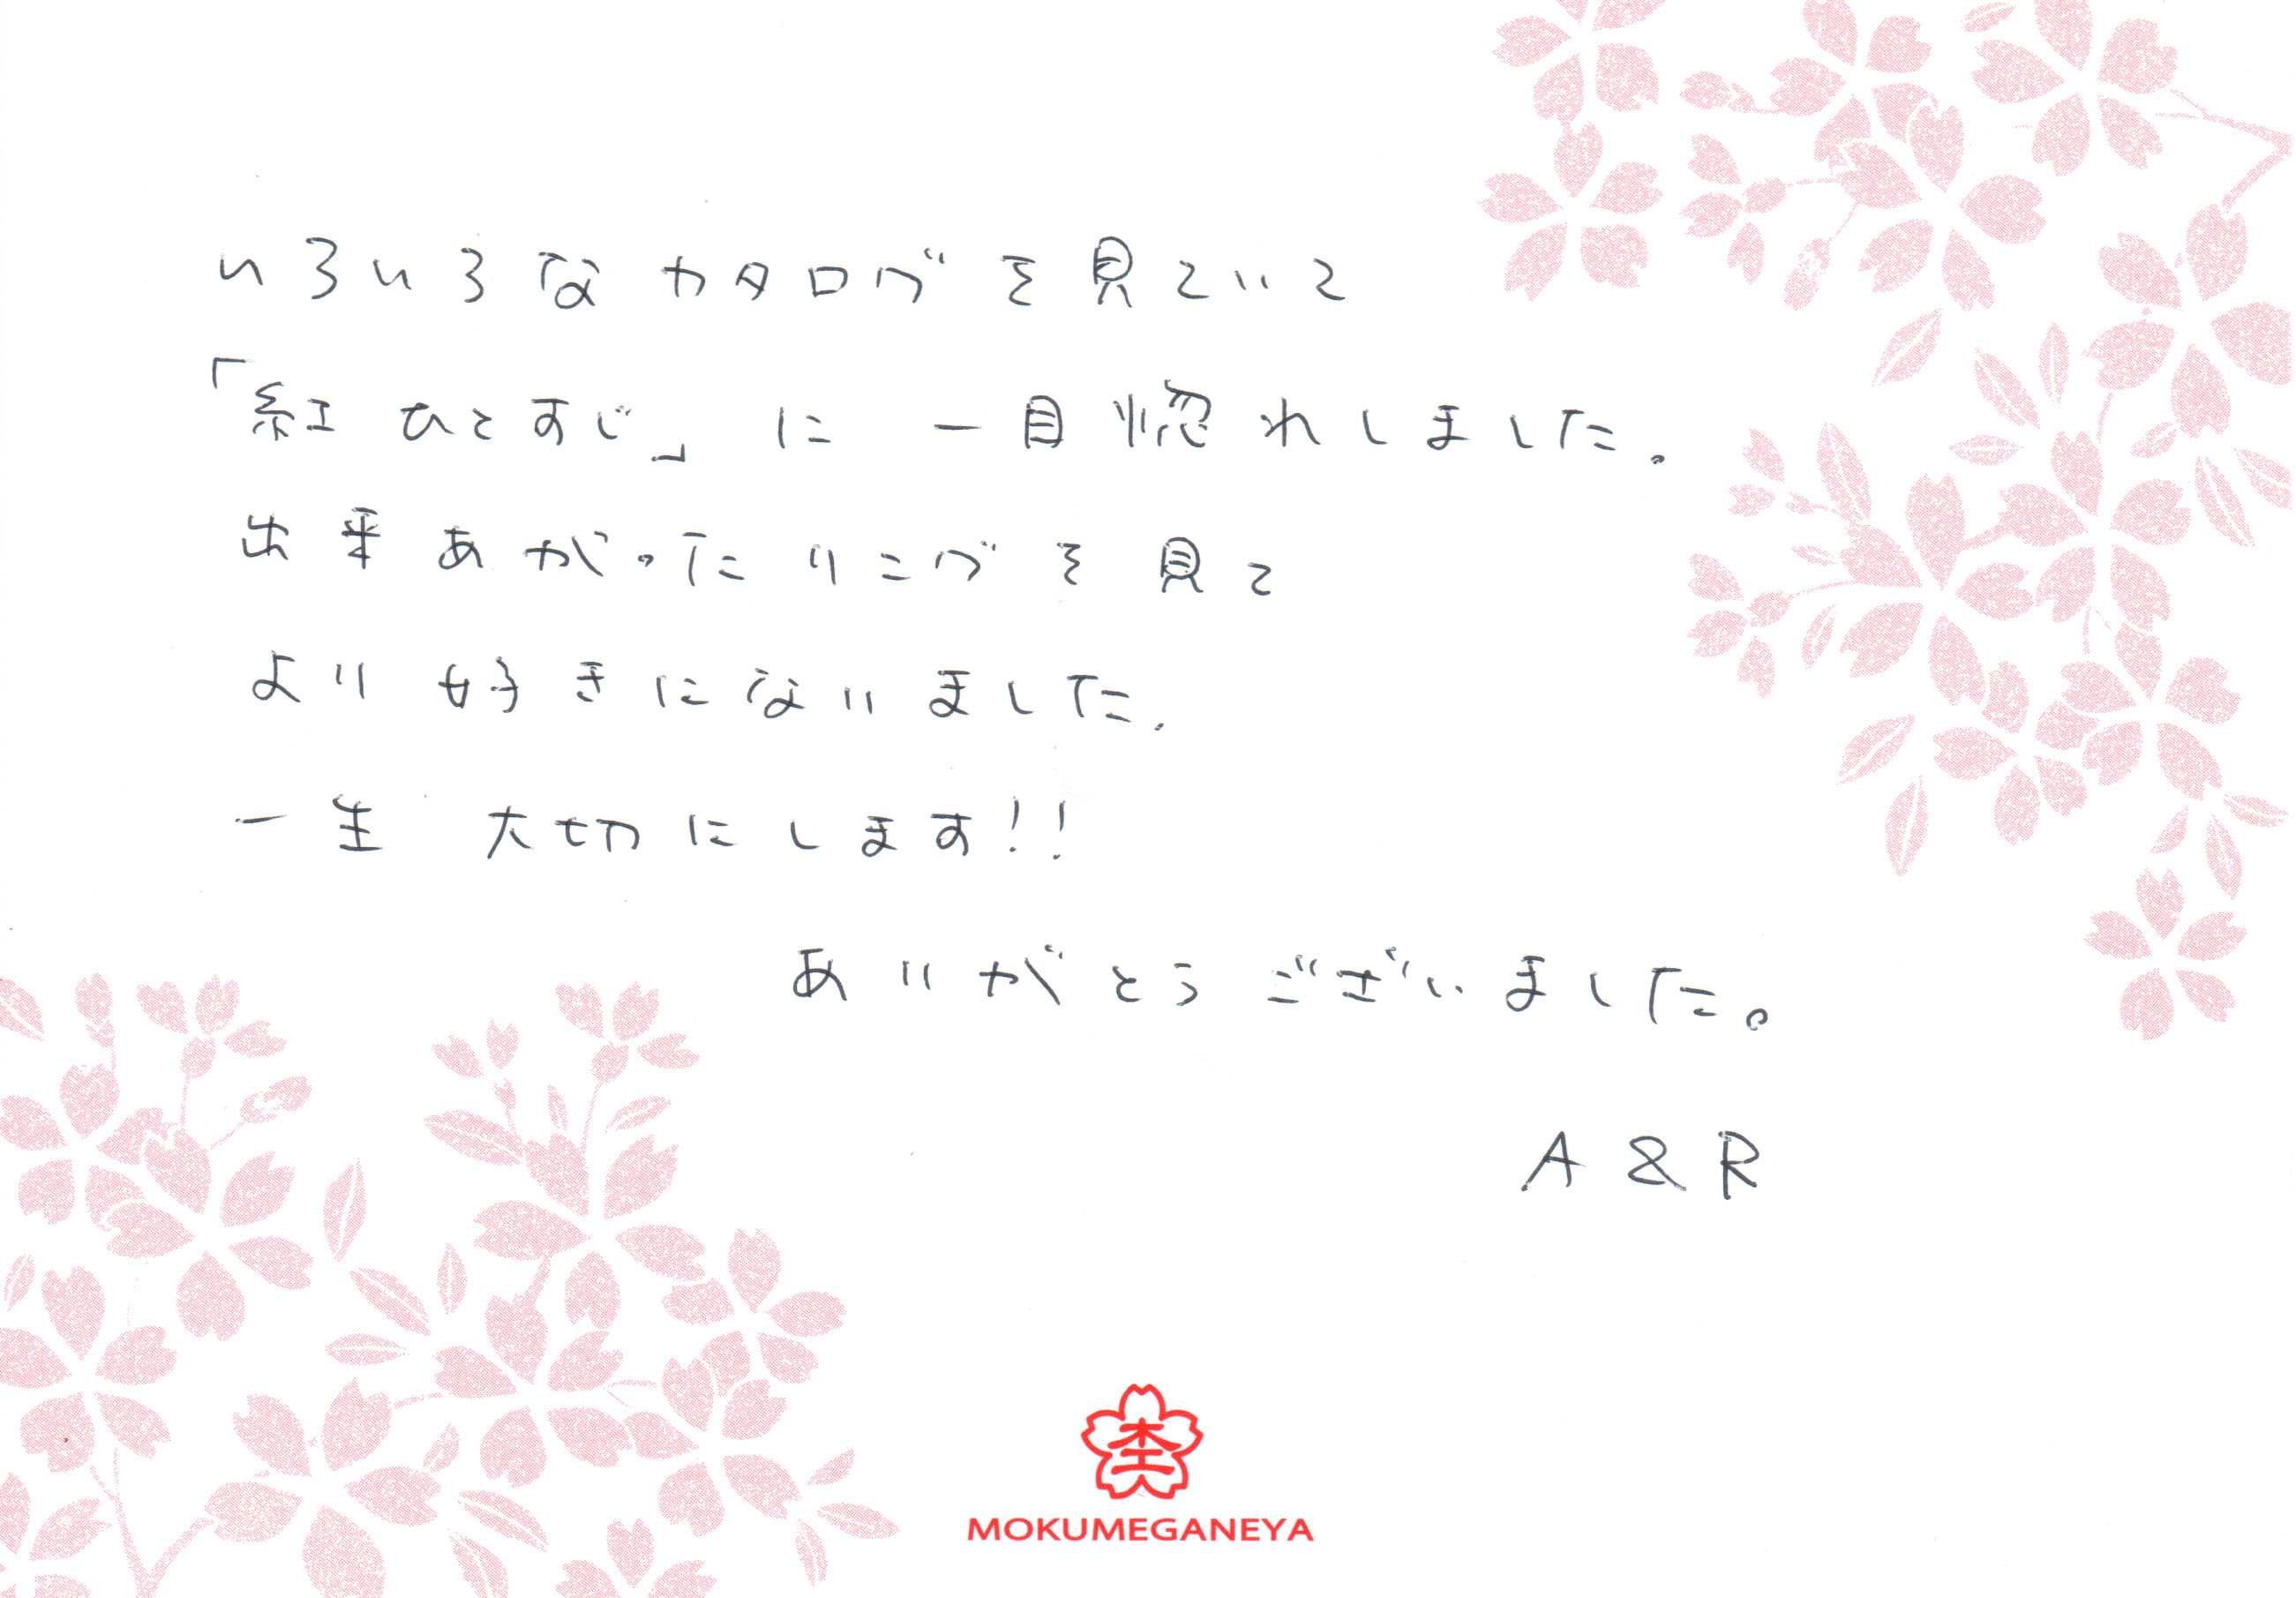 いろいろなカタログを見ていて
「紅ひとすじ」に 一目惚れしました。
出来あがったリングを見て
より好きになりました。
一生 大切にします!!
ありがとうございました。
A & R
杢
MOKUMEGANEYA